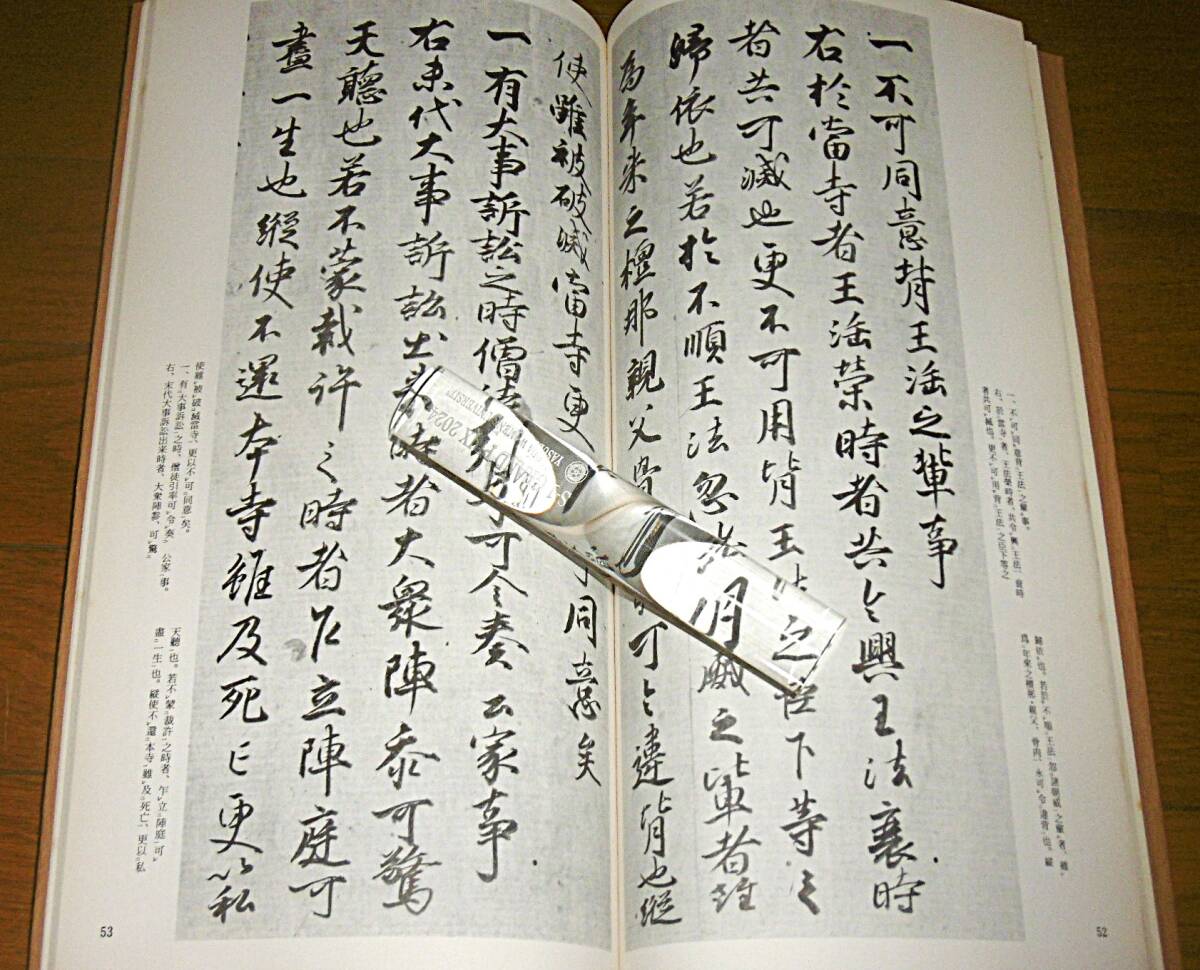 一不可同意背王法之輩事
右於當寺者王法榮時者共令興王法衰時
者共可滅也更不可用背王法之臣下等之
歸依也若於不順王法忽諸威之輩者雖
爲年來之檀那親父骨可令違背也縱
一、不可同意背王法之輩事。
右、於當寺者、王法榮時者、共令興王法、衰時
者共可滅也、更不可用背王法之臣下等之
歸依也。若於不順王法忽諸朝威之輩者、雖
爲年來之檀那、親父、骨肉、永可令違背也。縱
52
使雖被破滅當寺更可同意矣
一有大事訴訟之時僧徒可令奏公家事
右末代大事訴訟出來時者大衆陣參可驚
天聽也若不蒙裁許之時者乍立陣庭可
盡一生也縱使不還本寺雖及死亡更以私
使雖被破滅當寺、更以不可同意矣。
一、有大事訴訟之時、僧徒引率可令奏公家事。
右、末代大事訴訟出來時者、大衆陣參、可驚
天聽也。若不蒙裁許之時者、乍立陣庭可
盡一生也。縱使不還本寺、雖及死亡、更以私
53
2024